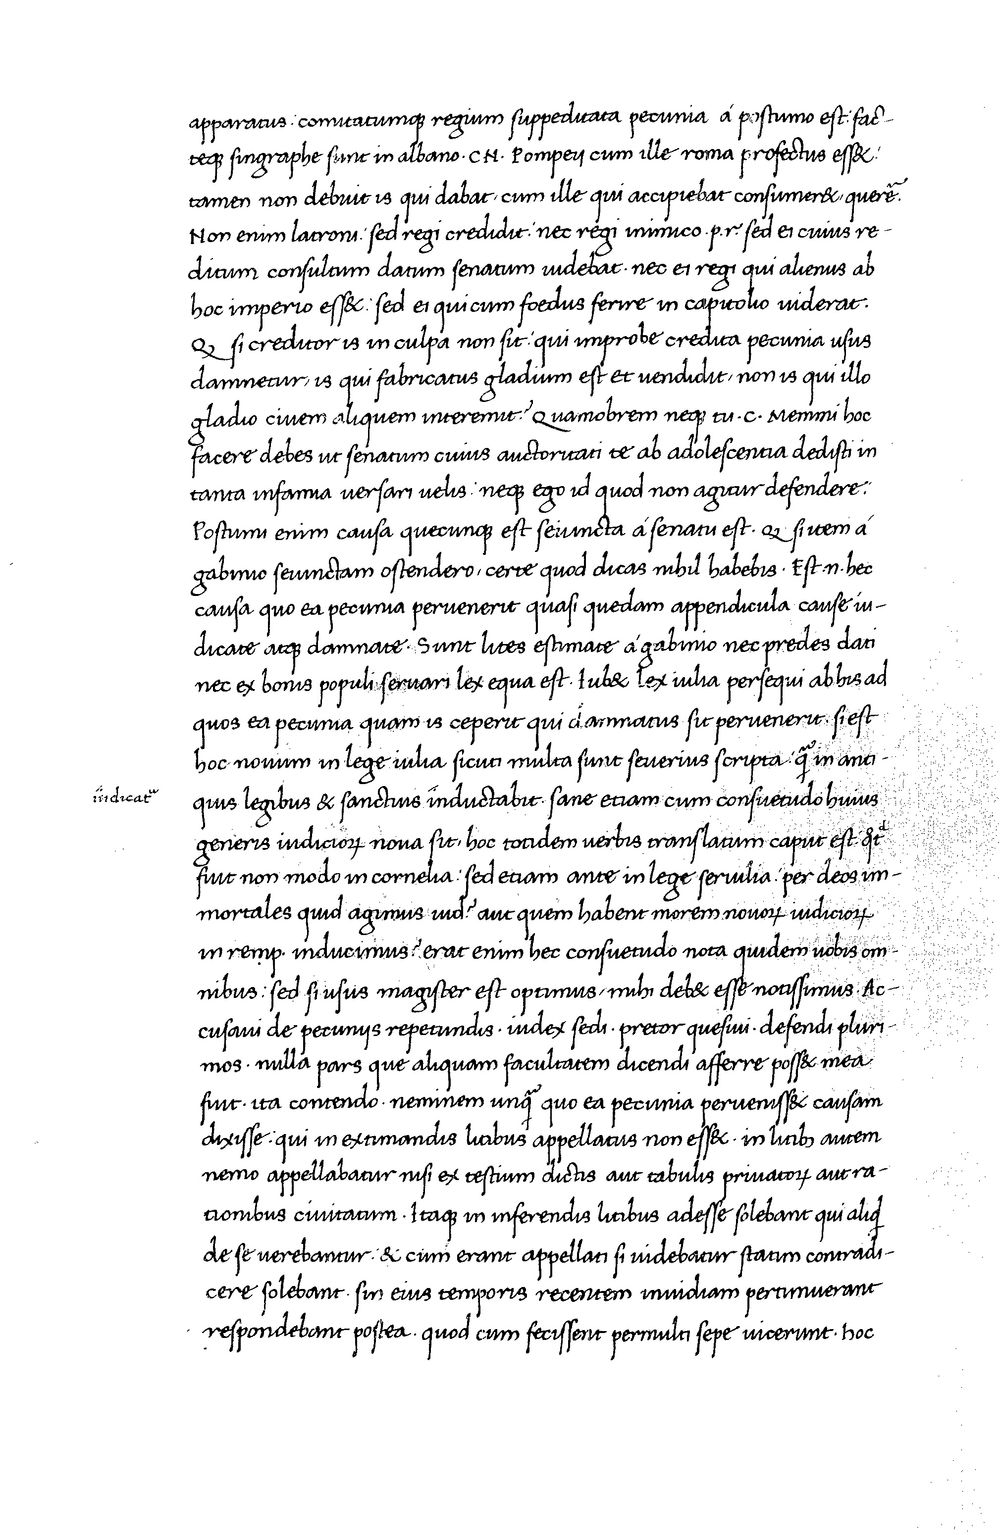 apparatus: comitatumq; regium suppeditata pecunia á postumo est: fact-
teq; singraphe sunt in albano. CN. Pompeij cum ille roma profectus ess&:
tamen non debuit is qui dabat, cum ille qui accipiebat consumer&, querer̃.
Non enim latroni: sed regi credidit: nec regi inimico .p.r. sed ei cuius re-
ditum consultum datum senatum uidebat. nec ei regi qui alienus ab
hoc imperio ess&: sed ei quicum foedus ferire in capitolio uiderat.
Q si creditor is in culpa non sit: qui improbe credita pecunia usus
damnetur, is qui fabricatus gladium est et uendidit, non is qui illo
gladio ciuem aliquem interemit? Quamobrem neq; tu .C. Memmi hoc
facere debes ut senatum cuius auctoritati te ab adolescentia dedisti in
tanta infamia uersari uelis: neq; ego id quod non agitur defendere:
Postumi enim causa quecunq; est seiuncta á senatu est. Q si item á
gabinio seiunctam ostendero, certe quod dicas nihil habebis. Est .n. hec
causa quo ea pecunia peruenerit quasi quedam appendicula cause iu-
dicate atq; damnate. Sunt lites estimate á gabinio nec predes dati
nec ex bonis populi seruari lex equa est. Iub& lex iulia persequi ab his ad
quos ea pecunia quam is ceperit qui damnatus sit peruenerit. si est
hoc nouum in lege iulia sicuti multa sunt seuerius scripta: q̃ in anti-
índicat̃
quis legibus & sanctius ínductabit. sane etiam cum consuetudo huius
generis iudicioꝝ noua sit, hoc totidem uerbis translatum caput est. qd̃
fuit non modo in cornelia: sed etiam ante in lege seruilia: per deos im-
mortales quid agimus iud? aut quem habent morem nouoꝝ iudicioꝝ
in remp. inducimus? erat enim hec consuetudo nota quidem uobis om-
nibus: sed si usus magister est optimus, mihi deb& esse notissimus. Ac-
cusaui de pecunijs repetundis. iudex sedi. pretor quesiui. defendi pluri-
mos. nulla pars que aliquam facultatem dicendi afferre poss& mea
fuit. ita contendo. neminem unq̃ quo ea pecunia perueniss& causam
dixisse: qui in extimandis litibus appellatus non ess&. in litib; autem
nemo appellabatur nisi ex testium dictis aut tabulis priuatoꝝ aut ra-
tionibus ciuitatum. Itaq; in inferendis litibus adesse solebant qui aliq̣
de se uerebantur: & cum erant appellati si uidebatur statim contradi-
cere solebant. sin eius temporis recentem inuidiam pertimuerant
respondebant postea. quod cum fecissent permulti sepe uicerunt. hoc